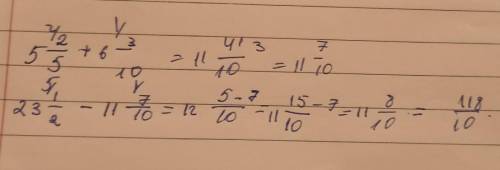 5 2/5 + 6 3/10 = 11 4+3/10 = 11 7/10
23 1/2 - 11 7/10 = 12 5-7/10 = 11 15-7/10 = 11 8/10 = 118/10.